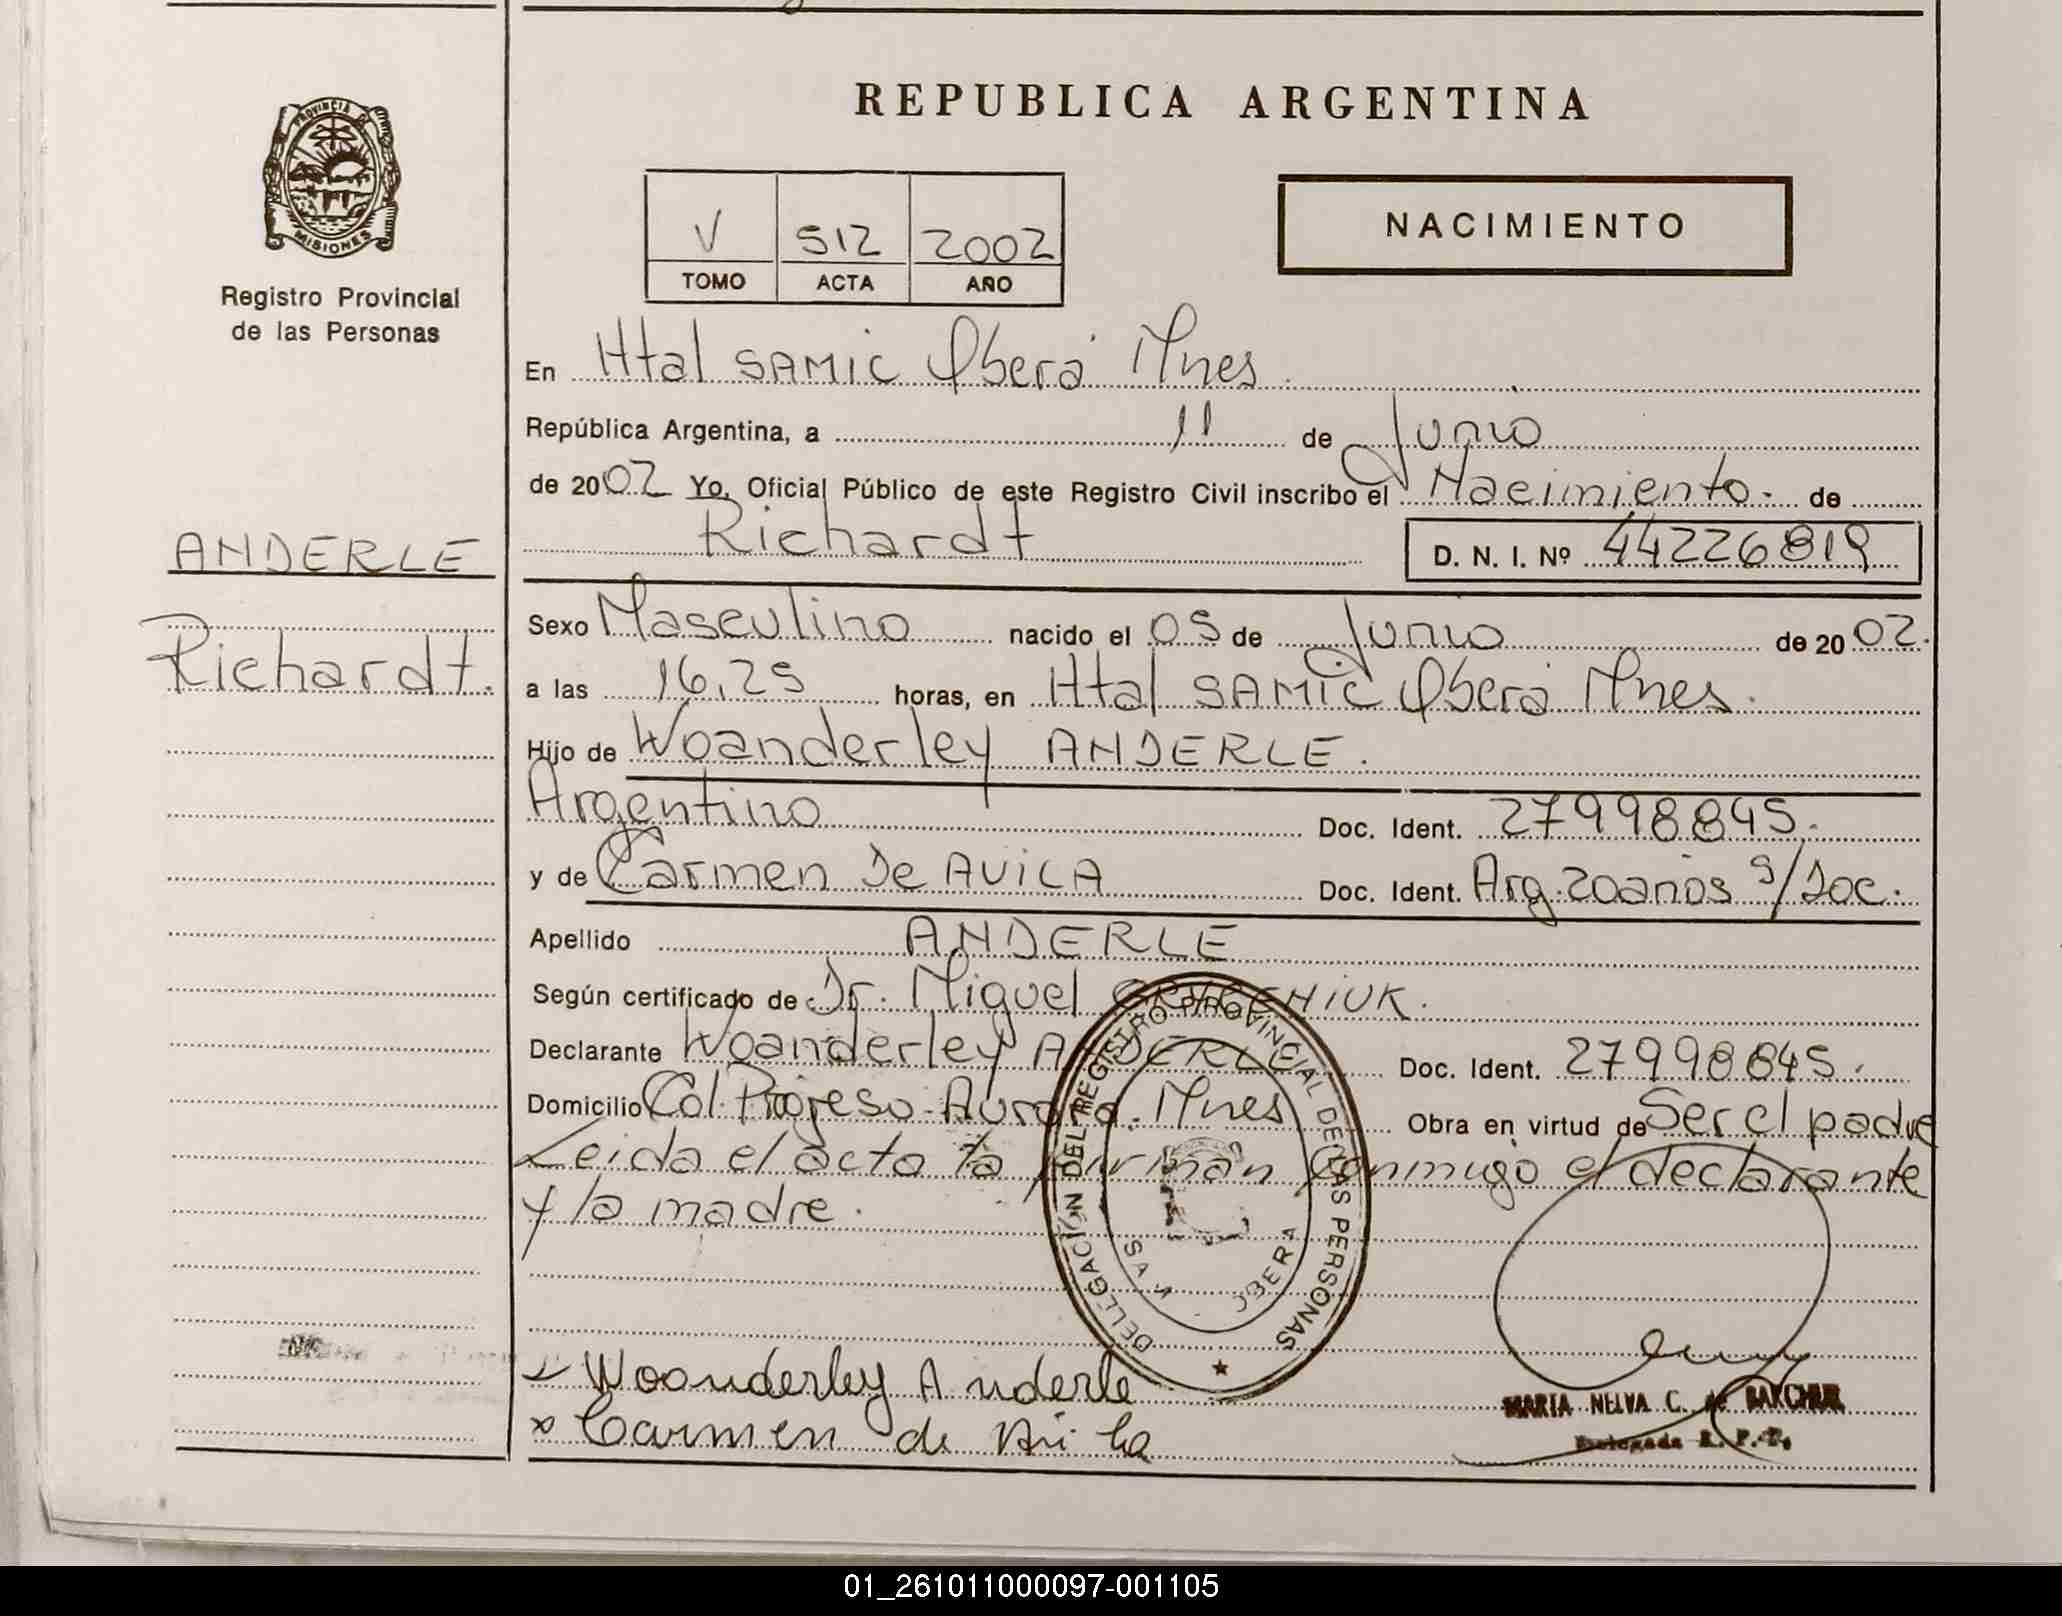 REPUBLICA ARGENTINA
PROVINCIA DE
MISIONES
Registro Provincial
de las Personas
V 512 2002
TOMO ACTA AÑO
NACIMIENTO
En Htal SAMIC Oberá Mnes.
República Argentina, a 11 de Junio
de 2002 Yo, Oficial Público de este Registro Civil inscribo el Nacimiento. de
Richardt D. N. I. Nº 44226819
ANDERLE
Richardt.
Sexo Masculino nacido el 05 de Junio de 2002.
a las 16,25 horas, en Htal SAMIC Oberá Mnes.
Hijo de Woanderley ANDERLE.
Argentino Doc. Ident. 27998845.
y de Carmen De AVILA Doc. Ident. Arg. 20 años s/Doc.
Apellido ANDERLE
Según certificado de Dr. Miguel
Declarante Woanderley ANDERLE Doc. Ident. 27998845.
Domicilio Col. Progreso-Aurora. Mnes Obra en virtud de Ser el padre
Leida el acta la firman conmigo el declarante
y la madre.
DELEGACIÓN DEL REGISTRO PROVINCIAL DE LAS PERSONAS
OBERA
Woanderley Anderle
x Carmen de Avila
MARIA NELVA C. de
R. P. P.
01_261011000097-001105